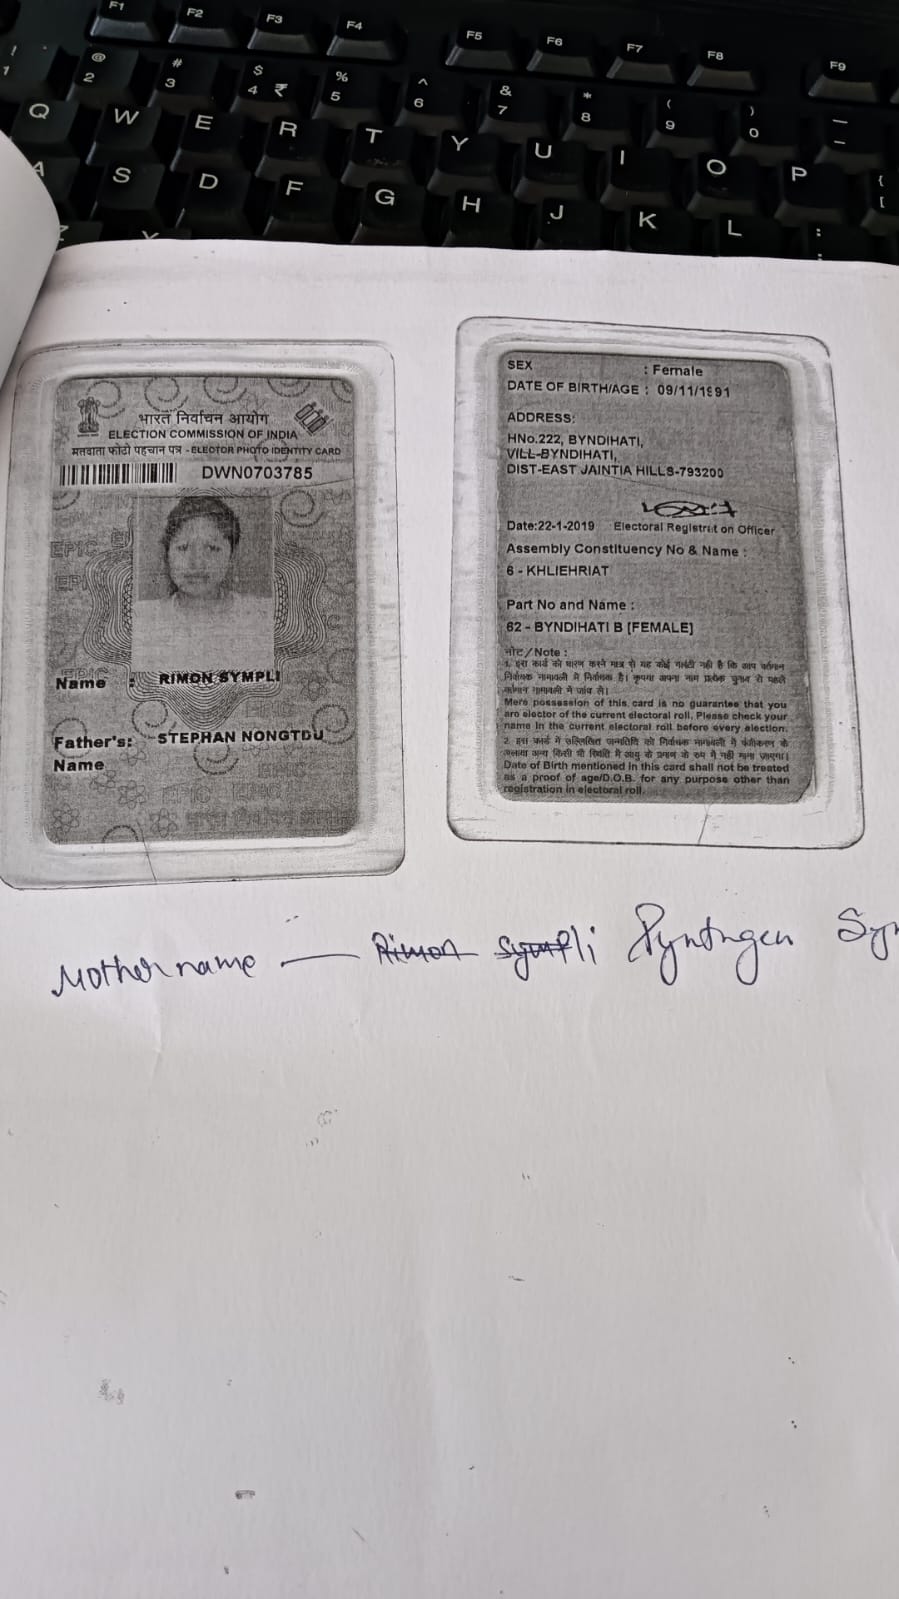 F1 F2 F3 F4 F5 F6 F7 F8 F9
! 1 @ 2 # 3 $ 4 ₹ % 5 ^ 6 & 7 * 8 ( 9 ) 0
Q W E R T Y U I O P
A S D F G H J K L :
भारत निर्वाचन आयोग
ELECTION COMMISSION OF INDIA
मतदाता फोटो पहचान पत्र - ELECTOR PHOTO IDENTITY CARD
DWN0703785
Name : RIMON SYMPLI
Father's: STEPHAN NONGTDU
Name
SEX : Female
DATE OF BIRTH/AGE : 09/11/1991
ADDRESS:
HNo.222, BYNDIHATI,
VILL-BYNDIHATI,
DIST-EAST JAINTIA HILLS-793200
Date:22-1-2019 Electoral Registration Officer
Assembly Constituency No & Name :
6 - KHLIEHRIAT
Part No and Name :
62 - BYNDIHATI B [FEMALE]
नोट/Note :
1. इस कार्ड को धारण करने मात्र से यह कोई गारंटी नहीं है कि आप वर्तमान
निर्वाचक नामावली में निर्वाचक हैं। कृपया अपना नाम प्रत्येक चुनाव से पहले
वर्तमान नामावली में जांच लें।
Mere possession of this card is no guarantee that you
are elector of the current electoral roll. Please check your
name in the current electoral roll before every election.
2. इस कार्ड में उल्लिखित जन्मतिथि को निर्वाचक नामावली में पंजीकरण के
अलावा अन्य किसी भी स्थिति में आयु के प्रमाण के रूप में नहीं माना जाएगा।
Date of Birth mentioned in this card shall not be treated
as a proof of age/D.O.B. for any purpose other than
registration in electoral roll.
Mother name — Rimon Sympli